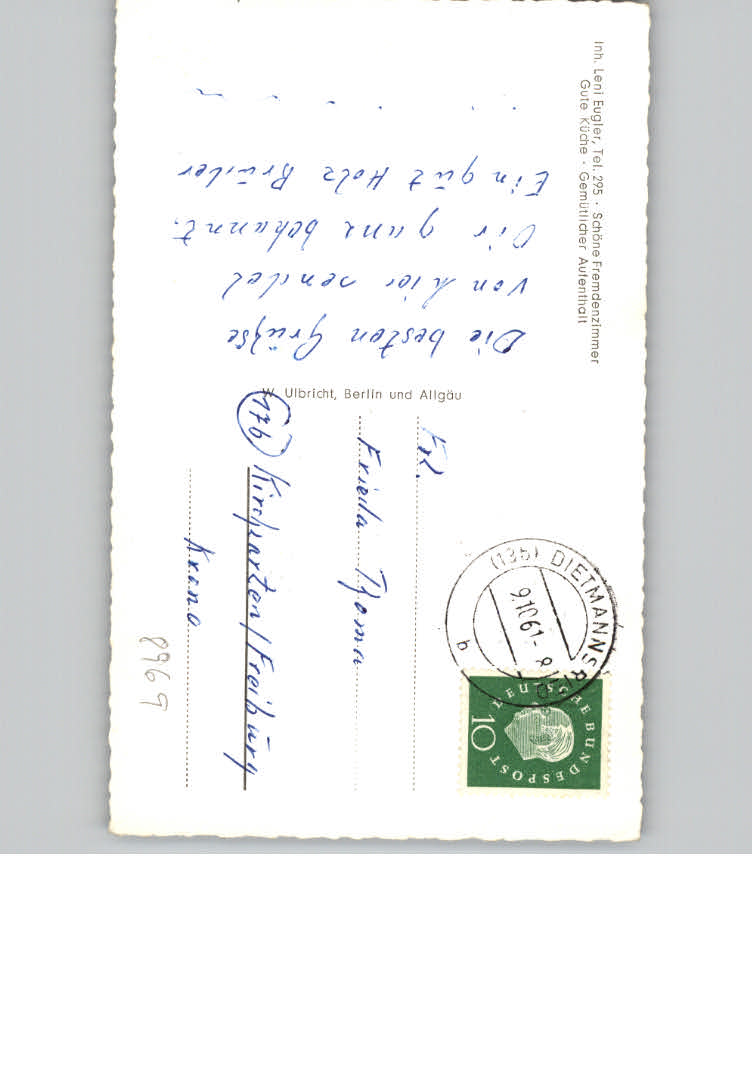 Inh. Leni Eugler, Tel. 295 · Schöne Fremdenzimmer
Gute Küche · Gemütlicher Aufenthalt
Die besten Grüße
von hier sendet
Dir ganz bekannt.
Ein gut Holz Brüder
W. Ulbricht, Berlin und Allgäu
Frl.
Frieda Thoma
(17b) Kirchzarten/Freiburg
Krone
(13b) DIETMANNSRIED
9.10.61-8
b
DEUTSCHE BUNDESPOST
10
8969